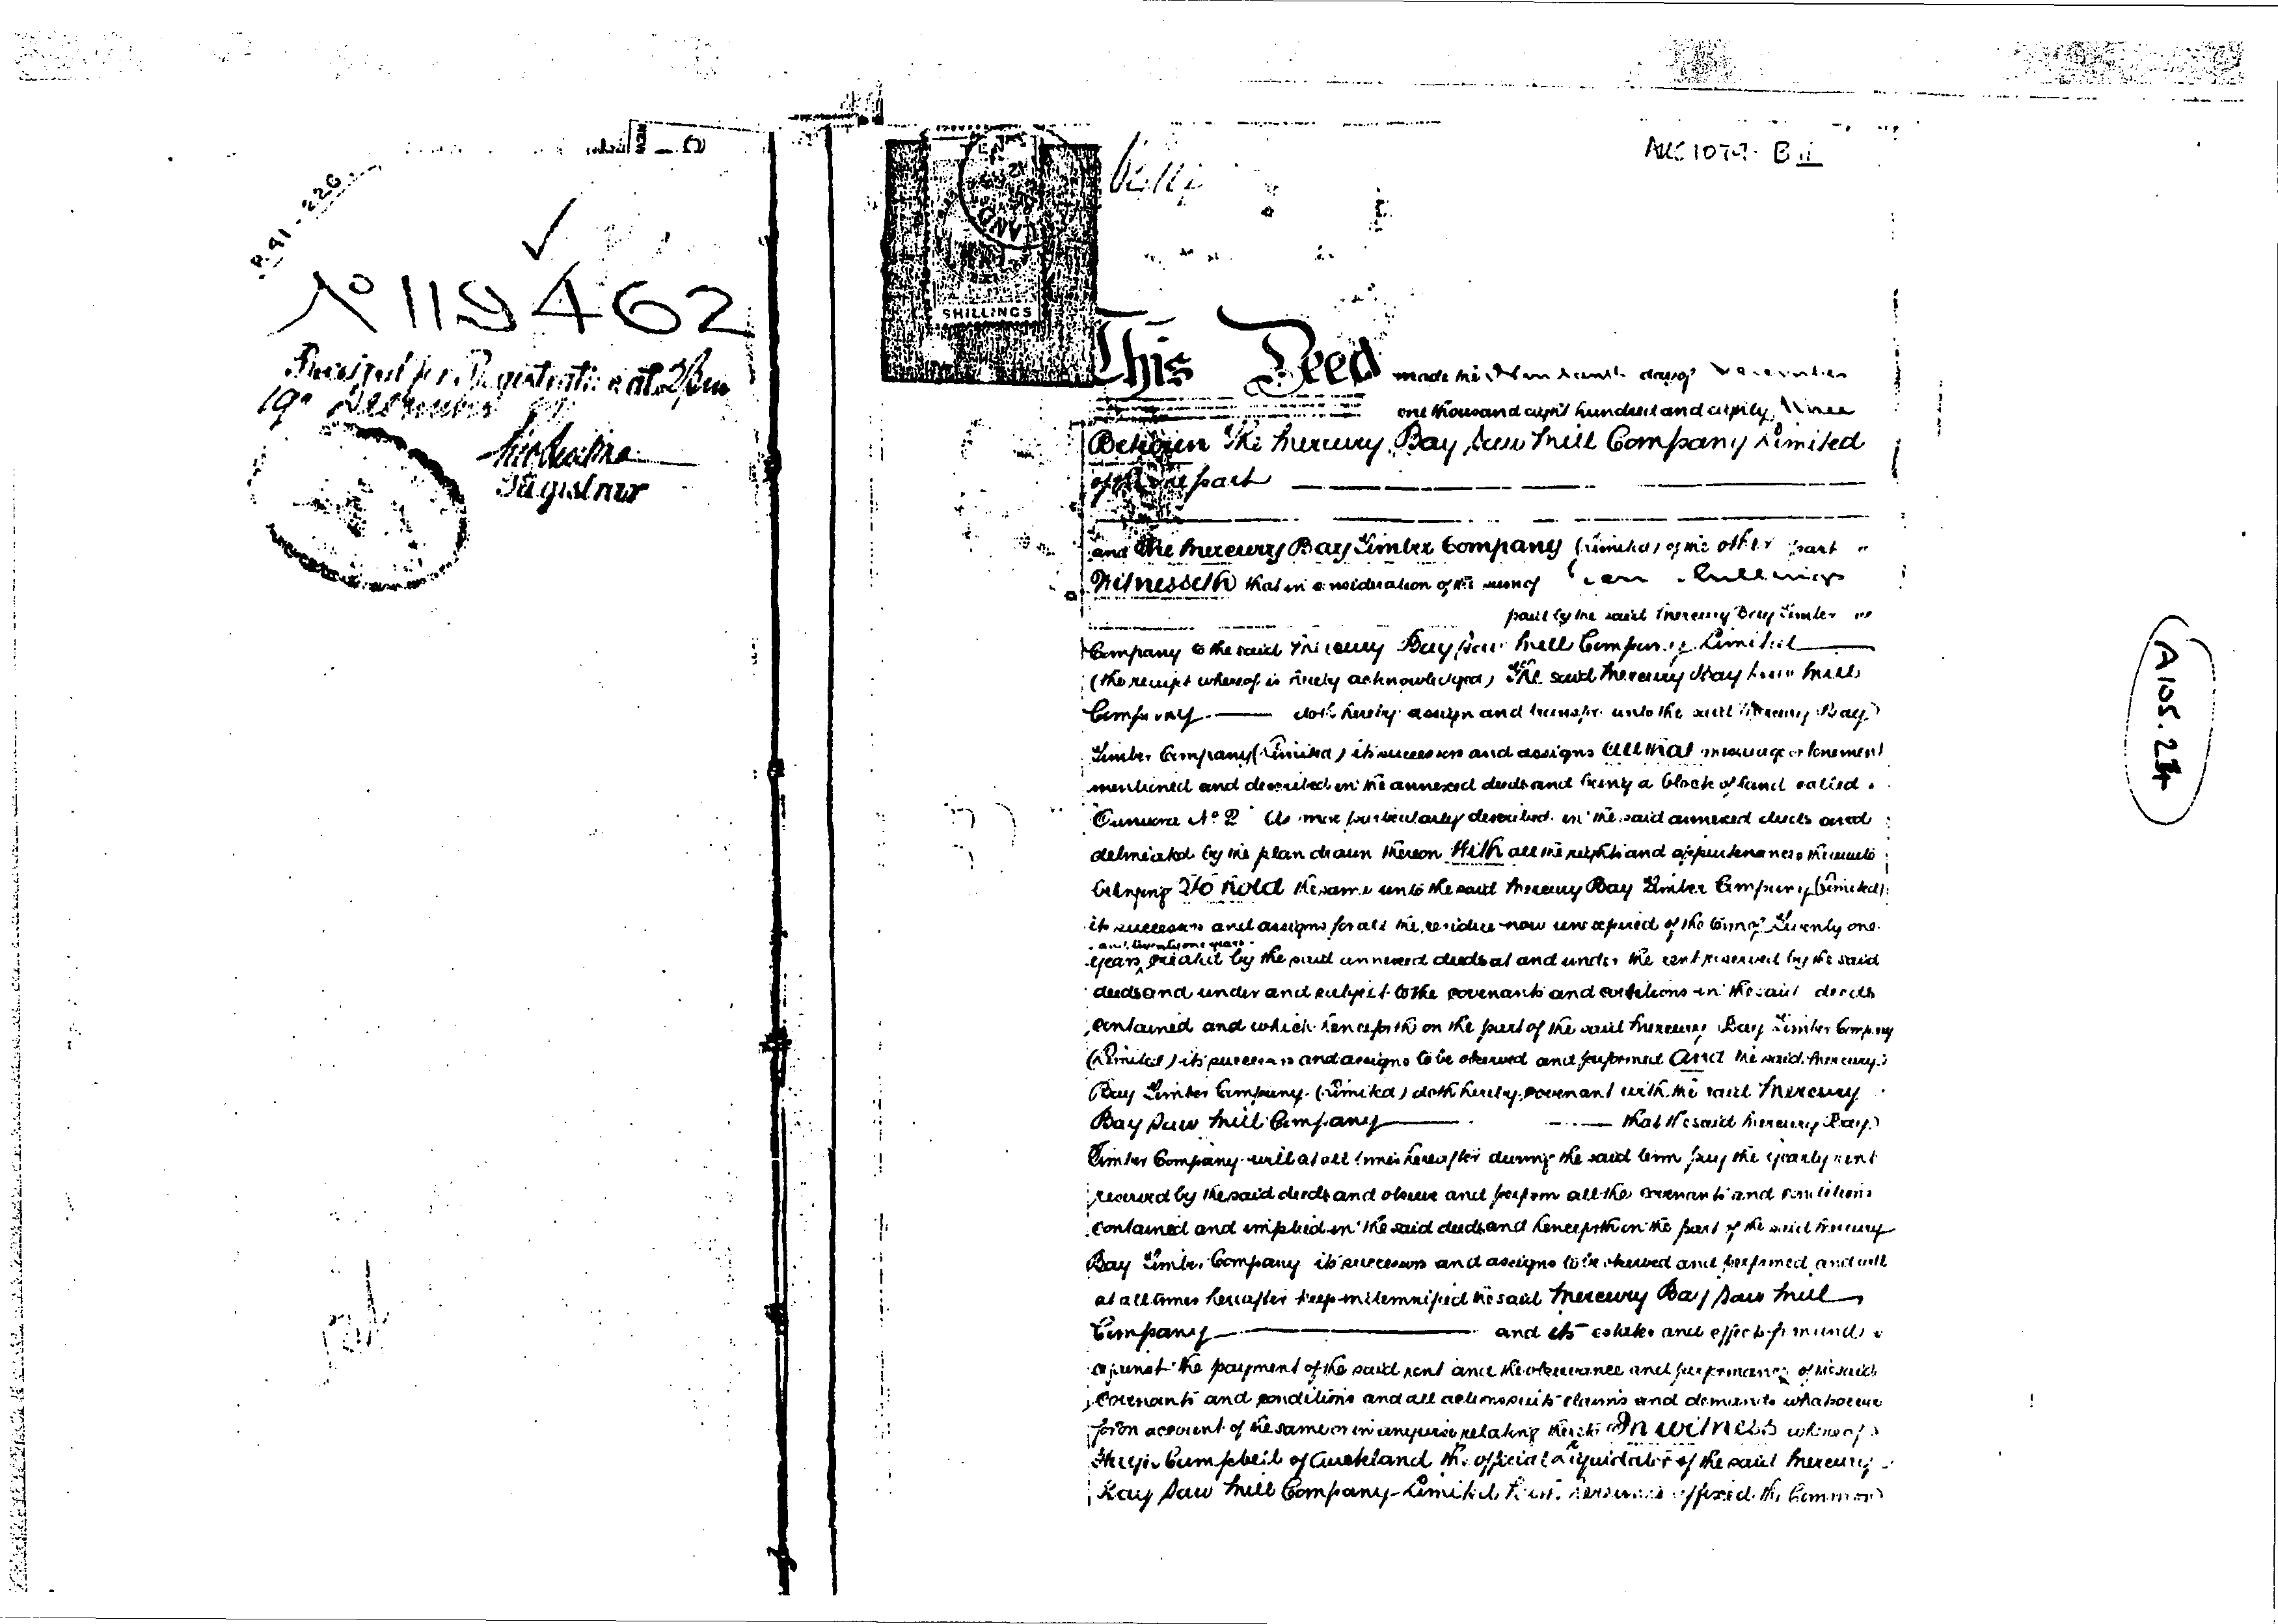 R91 - 226
No 119462
Received for Registration at 2
19 December
Registrar
SHILLINGS
AUC 1079 - B
A105.24
This Deed made the day of November
one thousand eight hundred and eighty three
Between The Mercury Bay Saw Mill Company Limited
of the one part
and the Mercury Bay Timber Company (Limited) of the other part
Witnesseth that in consideration of the sum of Ten Shillings
paid by the said Mercury Bay Timber
Company to the said Mercury Bay Saw Mill Company Limited
(the receipt whereof is hereby acknowledged) The said Mercury Bay Saw Mill
Company doth hereby assign and transfer unto the said Mercury Bay
Timber Company (Limited) its successors and assigns all that messuage or tenement
mentioned and described in the annexed deeds and being a block of land called
No 2 As more particularly described in the said annexed deeds and
delineated by the plan drawn thereon With all the rights and appurtenances thereunto
belonging To hold the same unto the said Mercury Bay Timber Company (Limited)
its successors and assigns for all the residue now unexpired of the term of Twenty one
and twenty one years
years created by the said annexed deeds at and under the rent reserved by the said
deeds and under and subject to the covenants and conditions in the said deeds
contained and which henceforth on the part of the said Mercury Bay Timber Company
(Limited) its successors and assigns to be observed and performed And the said Mercury
Bay Timber Company (Limited) doth hereby covenant with the said Mercury
Bay Saw Mill Company that the said Mercury Bay
Timber Company will at all times hereafter during the said term pay the yearly rent
reserved by the said deeds and observe and perform all the covenants and conditions
contained and implied in the said deeds and henceforth on the part of the said Mercury
Bay Timber Company its successors and assigns to be observed and performed and will
at all times hereafter keep indemnified the said Mercury Bay Saw Mill
Company and its estate and effects from and
against the payment of the said rent and the observance and performance of the said
covenants and conditions and all actions suits claims and demands whatsoever
for on account of the same or in anywise relating thereto In witness whereof
Campbell of Auckland the official Liquidator of the said Mercury
Bay Saw Mill Company Limited affixed the Common